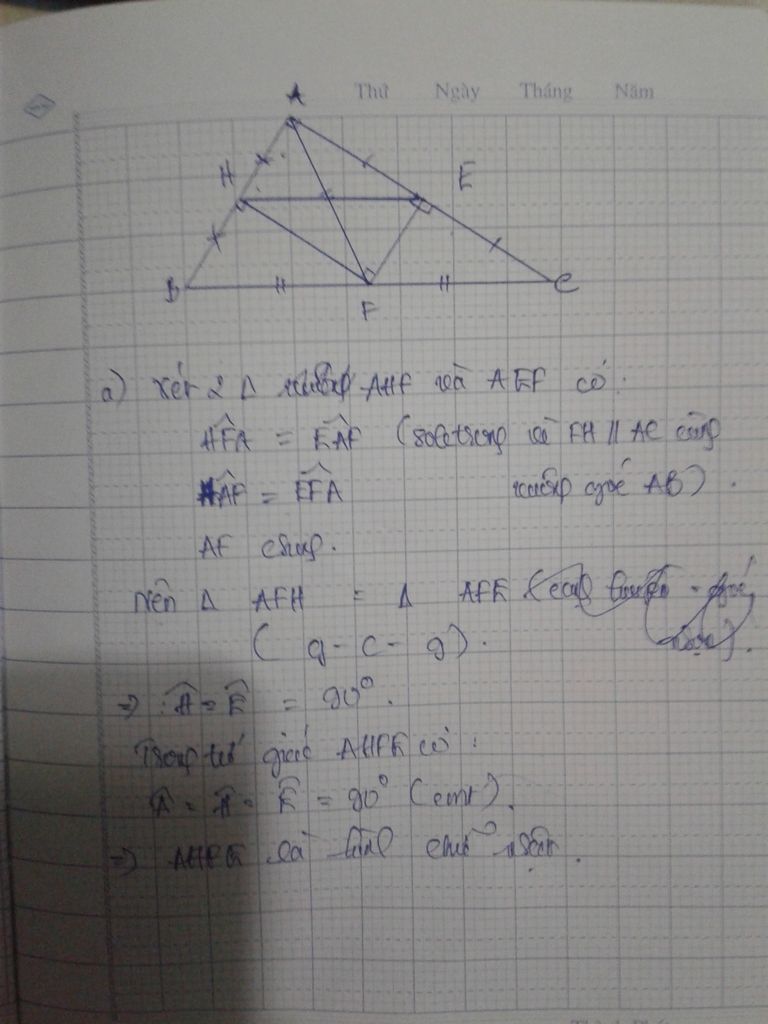 Thứ Ngày Tháng Năm
A
H
E
B
F
C
a) Xét 2 Δ vuông AHF và AEF có :
HFA = EAF (sole trong và FH // AC cùng
HAF = EFA vuông góc AB) .
AF chung.
Nên Δ AFH = Δ AFE
( g - c - g ) .
=> H = E = 90° .
Trong tứ giác AHFE có :
A = H = E = 90° (cmt) .
=> AHFE là hình chữ nhật .